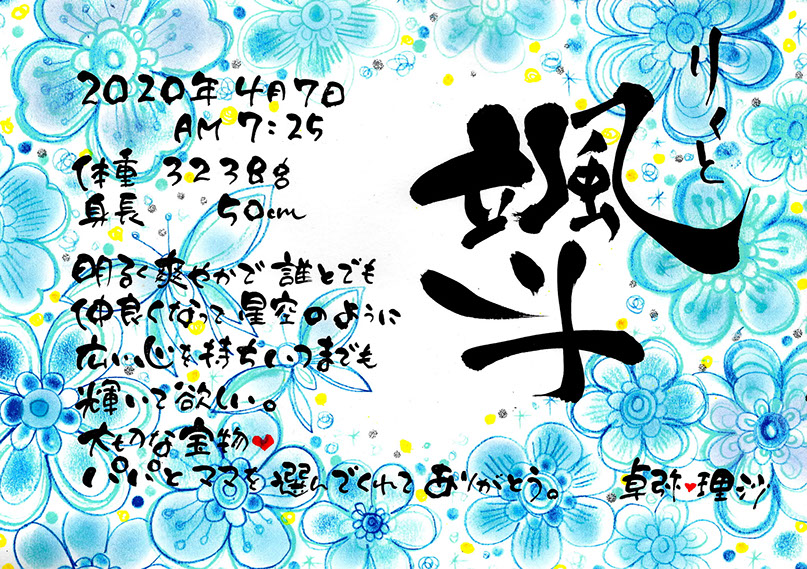 りくと
颯斗
2020年4月7日
AM 7:25
体重 3238g
身長 50cm
明るく爽やかで誰とでも
仲良くなって星空のように
広い心を持ちいつまでも
輝いて欲しい。
大切な宝物♥
パパとママを選んでくれてありがとう。
卓弥♥理沙